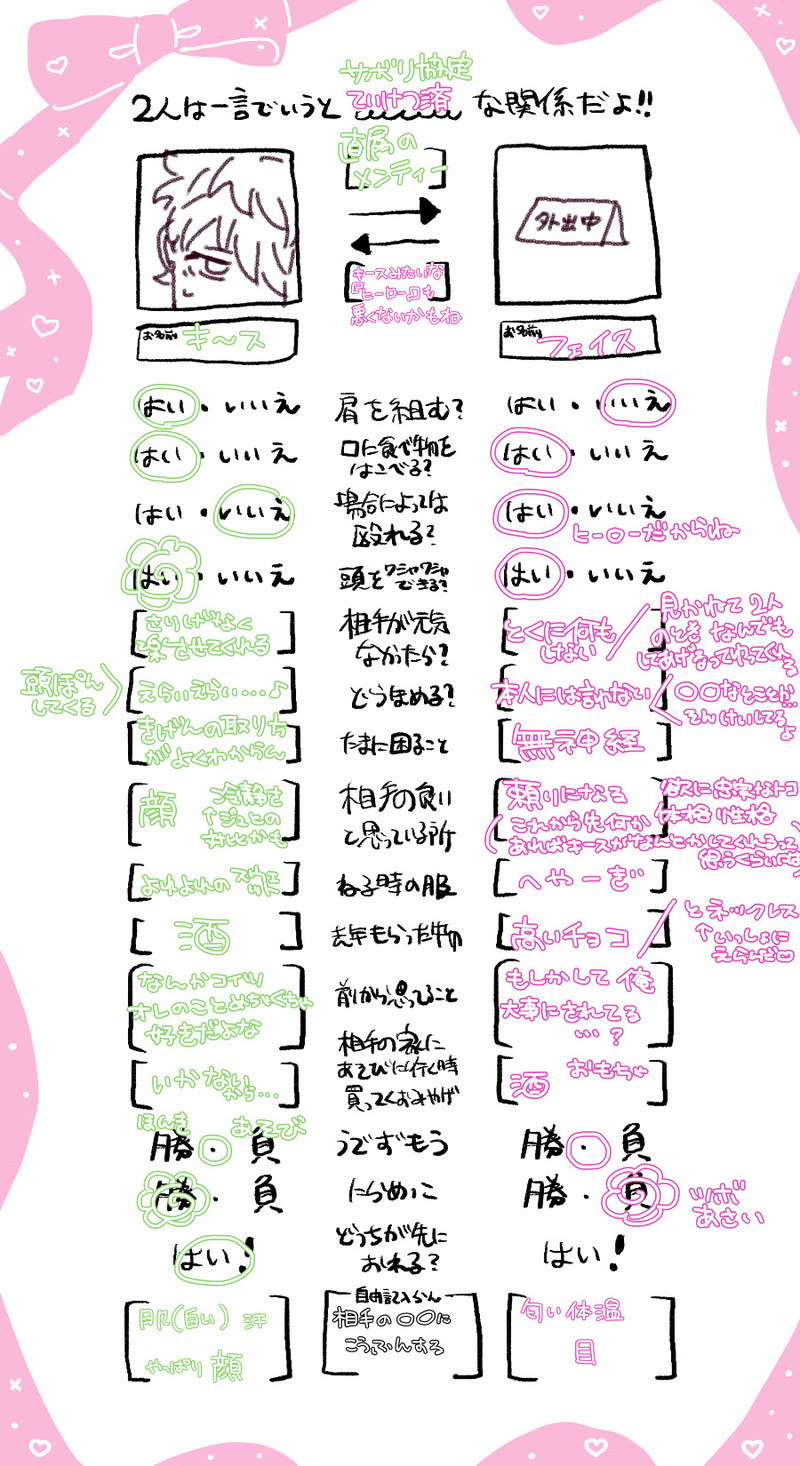 サボリ協定
2人は一言でいうと ていけつ済 な関係だよ!!
直属の
メンティー
外出中
キースみたいな
『ヒーロー』も
悪くないかもね
お名前 キース
お名前 フェイス
はい・いいえ 肩を組む? はい・いいえ
はい・いいえ 口に食べ物を はい・いいえ
はこべる?
はい・いいえ 場合によっては はい・いいえ
殴れる? ヒーローだからね
はい・いいえ 頭をワシャワシャ はい・いいえ
できる?
さりげなく
楽させてくれる
相手が元気
なかったら?
とくに何も
しない
見かねて2人
のとき なんでも
してあげるってやってくる
頭ぽん
してくる
えらいえらい……♪
どうほめる?
本人には言わない
〇〇なとことか…
そんけいしてるよ
きげんの取り方
がよくわからん
たまに困ること
無神経
顔 冷静さ
↑ジュニとの
相手の良い
と思っている所
頼りになる
(これから先何か
あればキースがなんとかしてくれるって
思うくらいには
欲に忠実なトコ
体格 性格
よれよれのスウェ
ねる時の服
へやーぎ
酒
去年もらった物
高いチョコ
とネックレス
↑いっしょに
えらんだ
なんかコイツ
オレのことめちゃくちゃ
好きだよな
前から思ってること
もしかして俺
大事にされてる
…?
いかない
から…
相手の家に
あそびに行く時
買ってくおみやげ
酒 おもちゃ
ほんき あそび
勝・負 うでずもう 勝・負
勝・負 にらめっこ 勝・負
ツボ
あさい
はい! どっちが先に はい!
おれる?
肌(白い) 汗
やっぱり 顔
自由記入らん
相手の〇〇に
こうふんする
匂い 体温
目